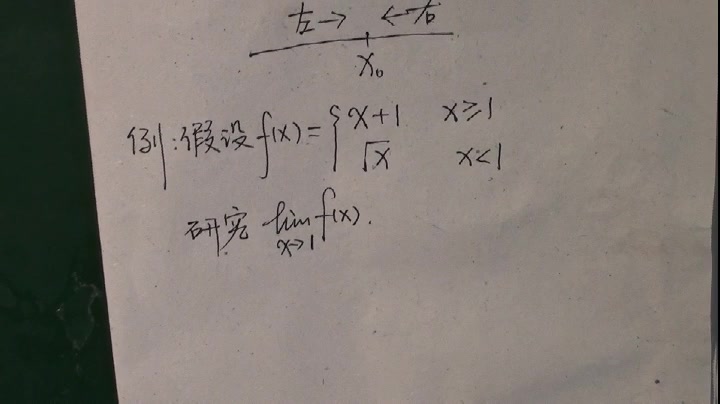 左→ ←右
x₀
例:假设f(x)={x+1 x≥1
√x x<1
研究 lim f(x).
x→1